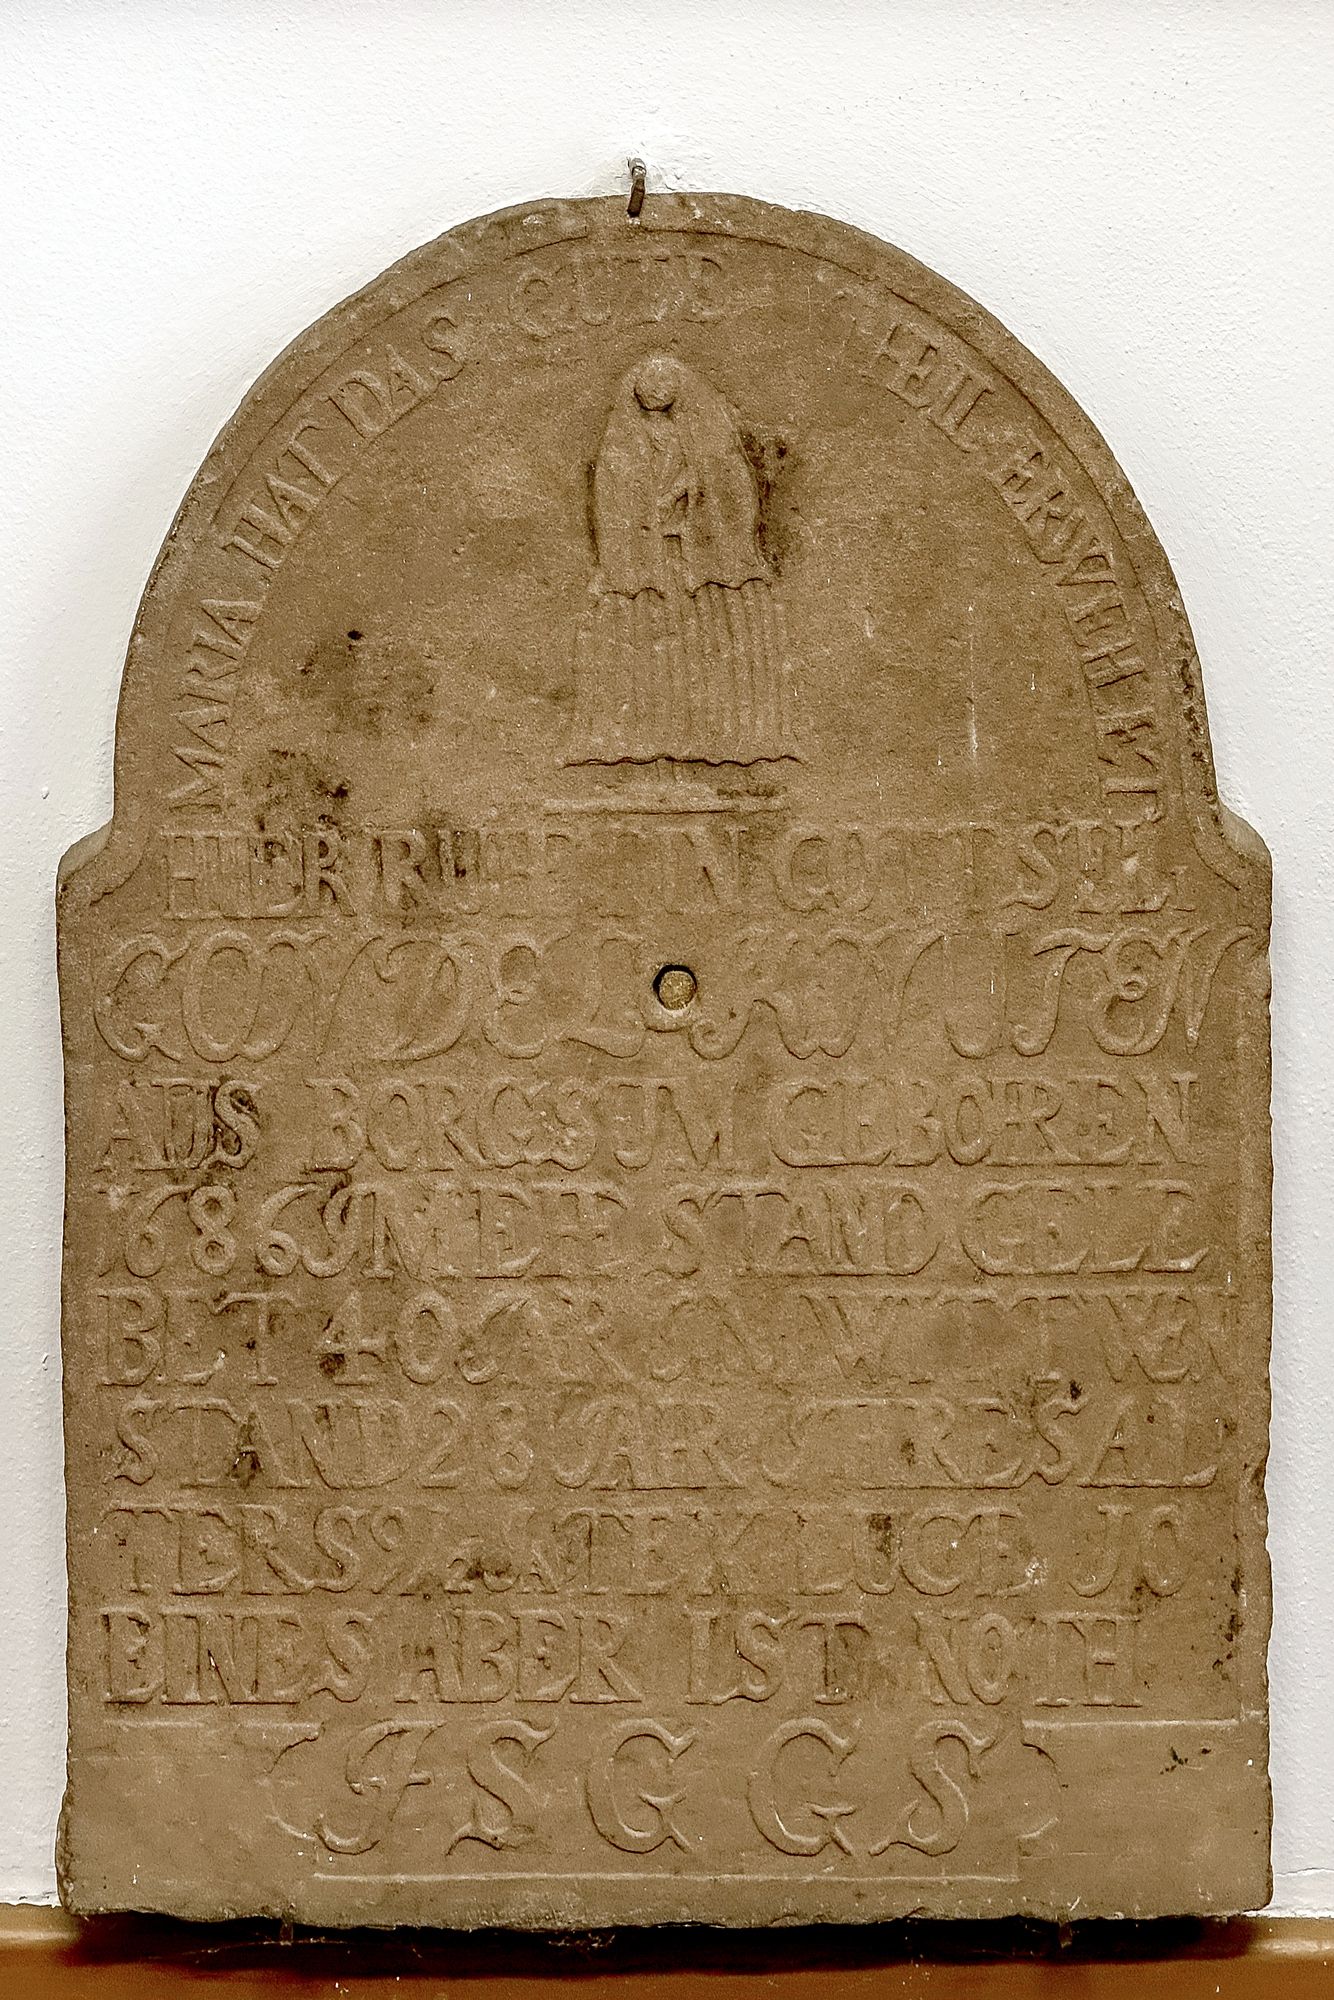 MARIA HAT DAS GUTE THEIL ERWEHLET
HIER RUHET IN GOTT SEL
GONDEL KNUTEN
AUS BORGSUM GEBOHREN
1686 IN EHE STAND GELE
BET 40 JAR IN WITTWEN
STAND 28 JAR IHRES AL
TERS 91 TEX LUCE JO
EINES ABER IST NOTH
F S G G S